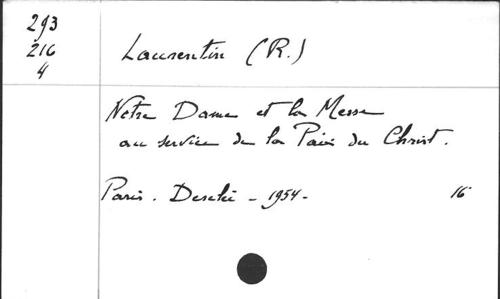 293
216
4
Laurentin (R.)
Notre Dame et la Messe
au service de la Paix du Christ.
Paris. Desclée - 1954 -
16